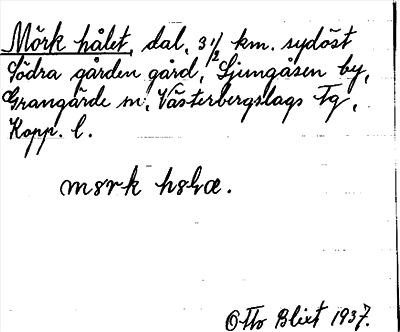 Mörk hålet, dal, 3 1/2 km. sydöst
Södra gården gård, Ljungåsen by,
Grangärde sn, Västerbergslags Fg,
Kopp. l.
Otto Blixt 1937.